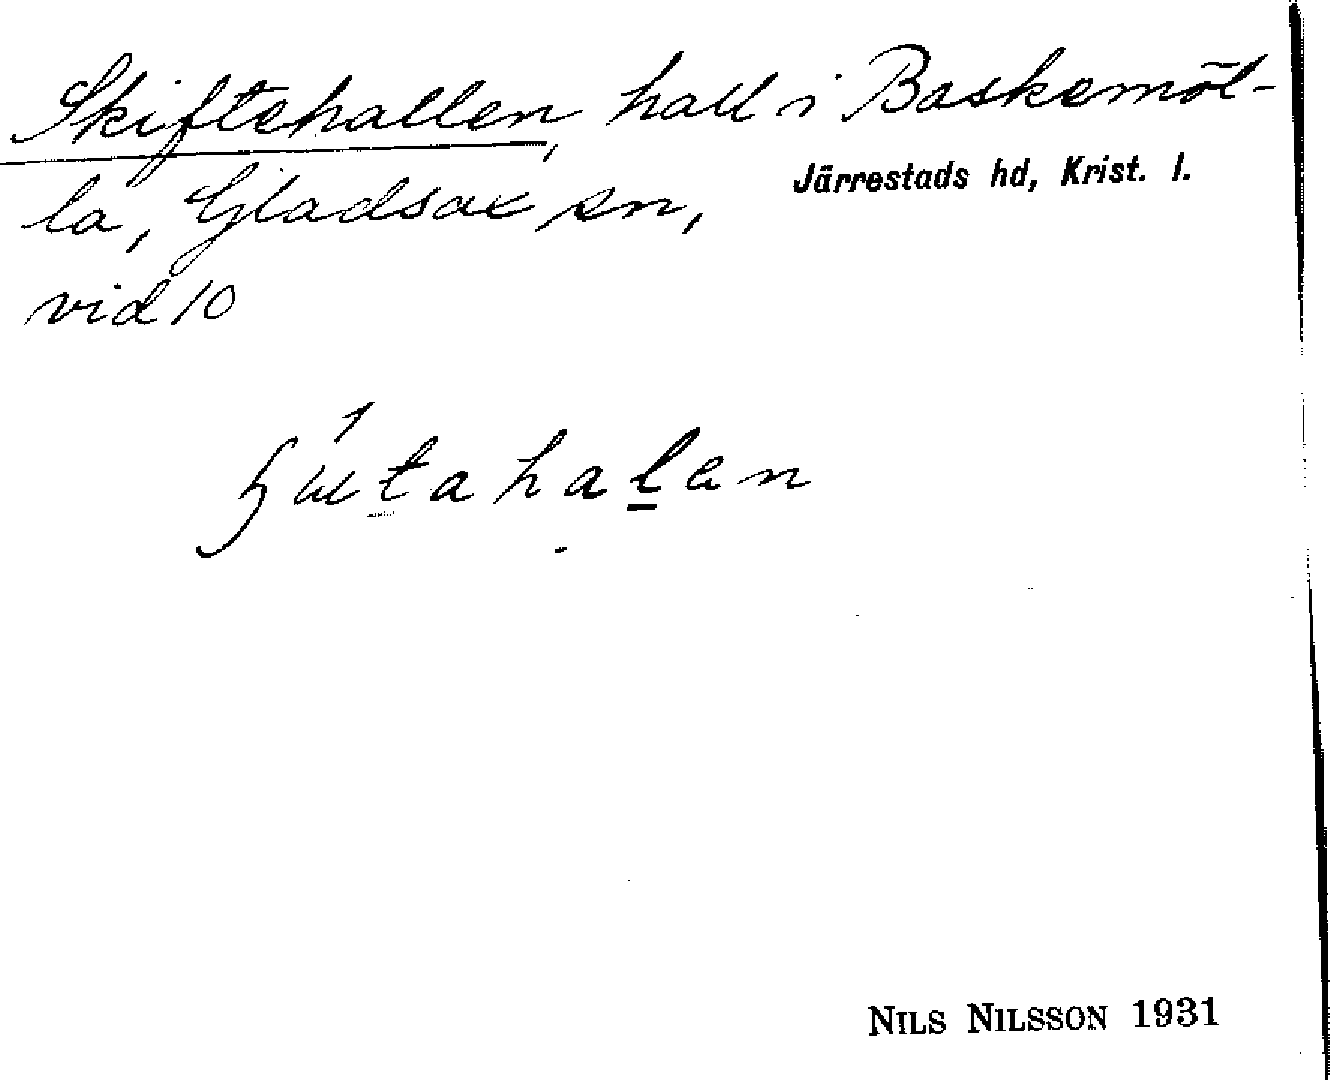 Skiftehallen, hall i Baskemöl-
la, Gladsax sn,
Järrestads hd, Krist. l.
vid 10
NILS NILSSON 1931